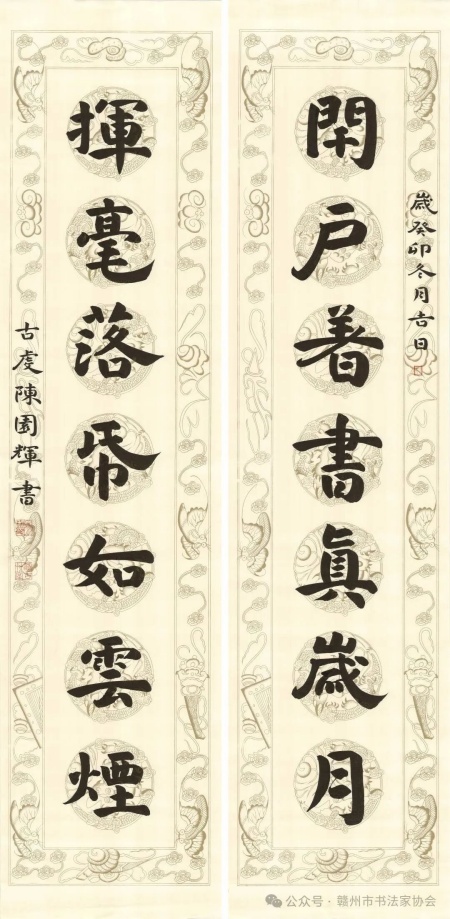 閇户着書眞歲月
歲癸卯冬月吉日
揮毫落帋如雲煙
古虔陳園輝書
公众号·赣州市书法家协会